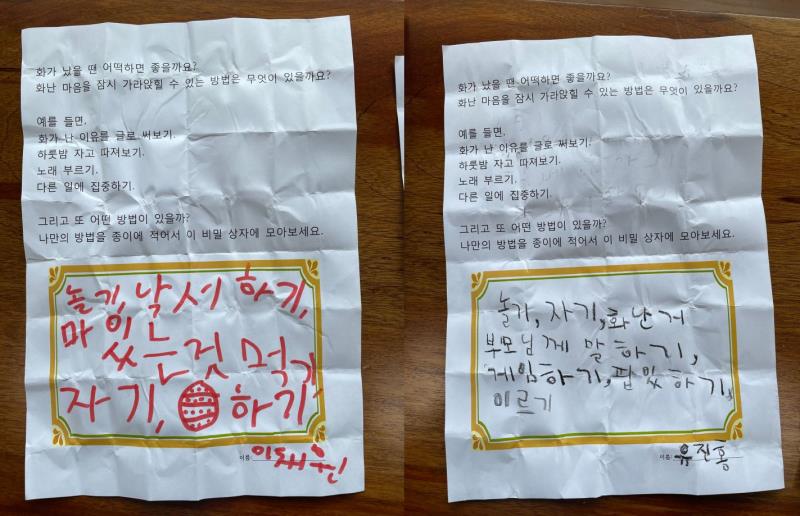 화가 났을 땐 어떡하면 좋을까요?
화난 마음을 잠시 가라앉힐 수 있는 방법은 무엇이 있을까요?
예를 들면,
화가 난 이유를 글로 써보기.
하룻밤 자고 따져보기.
노래 부르기.
다른 일에 집중하기.
그리고 또 어떤 방법이 있을까?
나만의 방법을 종이에 적어서 이 비밀 상자에 모아보세요.
놀기, 낙서 하기,
마있
는것 먹기
자기, 하기
이름:
화가 났을 땐 어떡하면 좋을까요?
화난 마음을 잠시 가라앉힐 수 있는 방법은 무엇이 있을까요?
예를 들면,
화가 난 이유를 글로 써보기.
하룻밤 자고 따져보기.
노래 부르기.
다른 일에 집중하기.
그리고 또 어떤 방법이 있을까?
나만의 방법을 종이에 적어서 이 비밀 상자에 모아보세요.
놀기, 자기, 화난거
부모님께 말하기,
게임하기, 핍밌하기,
이르기
이름: 유진홍